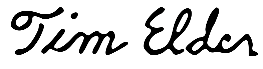 Tim Elder